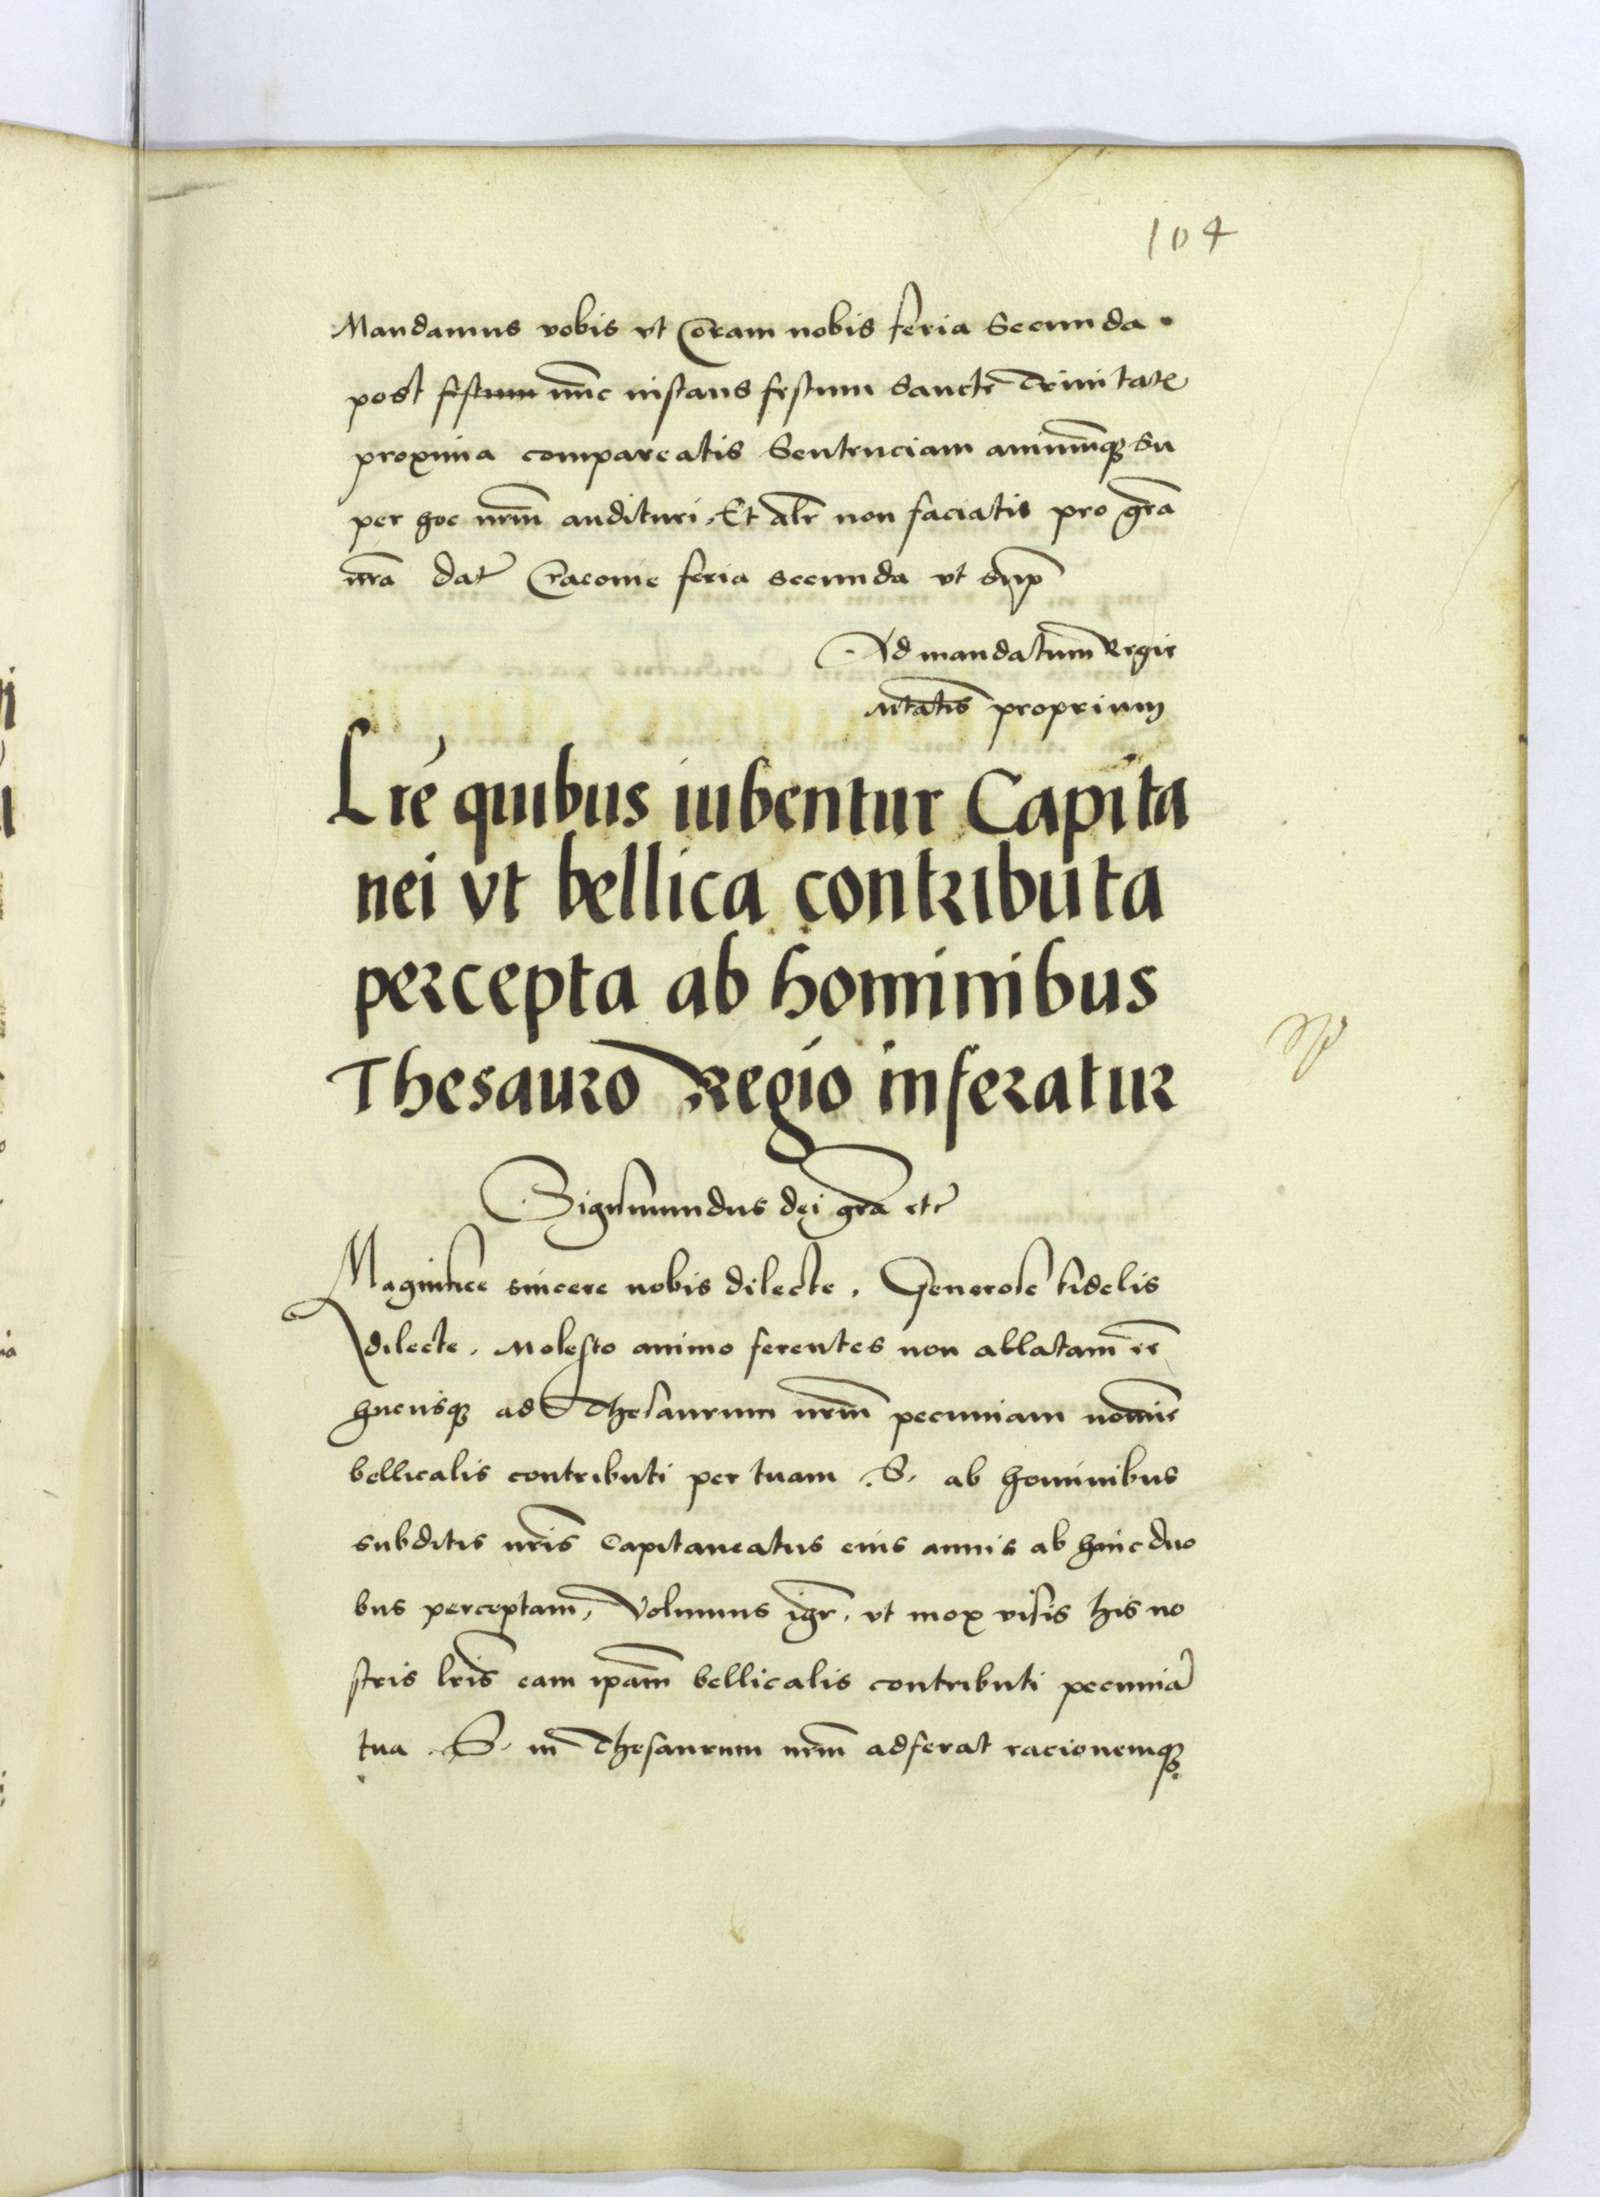 104
Mandamus vobis vt Coram nobis feria Secunda
post festum nūc instans festum Sancte Trinitatꝭ
proxima compareatis Sentenciam animūqꝫ Su
per hoc nrm̄ audituri, Et alr̄ non faciatis pro gr̄a
nr̄a Dat̄ Cracovie feria secunda vt sup̄
Ad mandatum Regie
Mtatis̄ proprium
Lrē quibus iubentur Capita
nei vt bellica contributa
percepta ab hominibus
Thesauro Regio inferatur
Sigismundus dei gr̄a etc̄
Magnifice sincere nobis dilecte, Generose fidelis
dilecte, Molesto animo ferentes non ablatam ee̅
hucusqꝫ ad Thesaurum nrm̄ pecuniam nomīe
bellicalis contributi per tuam .S. ab hominibus
subditis nrīs Capitaneatus eius annis ab hinc duo
bus perceptam, Volumus igr̄, vt mox visis his no
stris lrīs eam ipām bellicalis contributi pecuniā
tua .S. in Thesaurum nrm̄ adferat racionemqꝫ